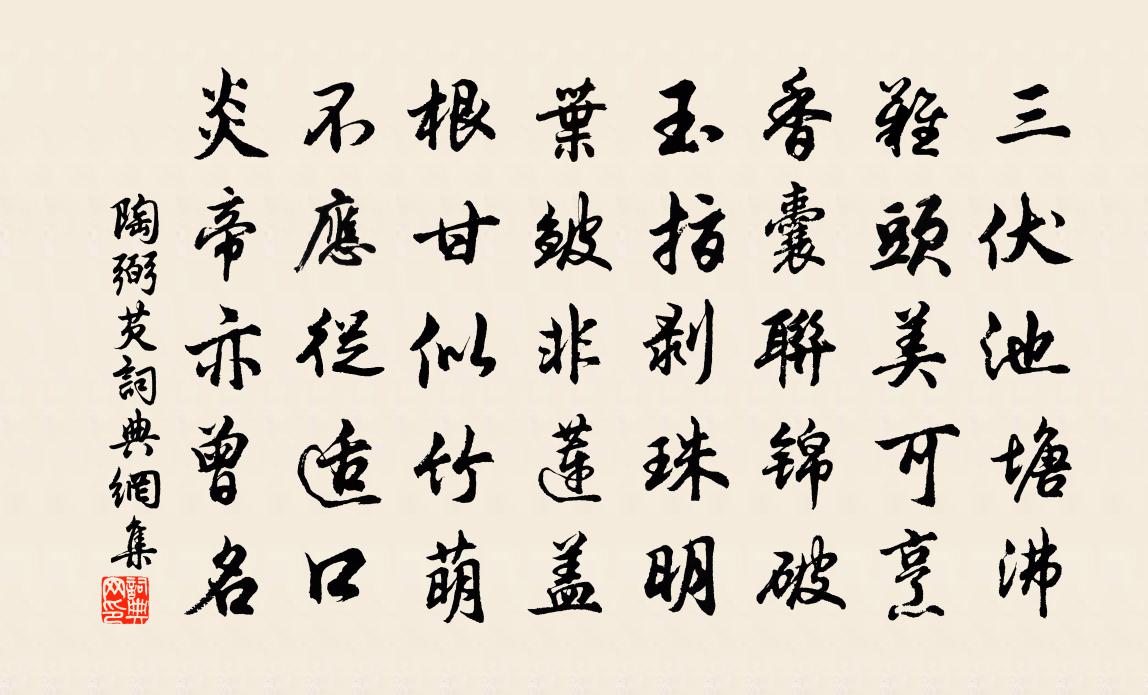 三伏池塘沸
雞頭美可烹
香囊聯锦破
玉指剥珠明
葉皱非蓮盖
根甘似竹萌
不應從适口
炎帝亦曾名
陶弼芡詞典網集
詞典網印